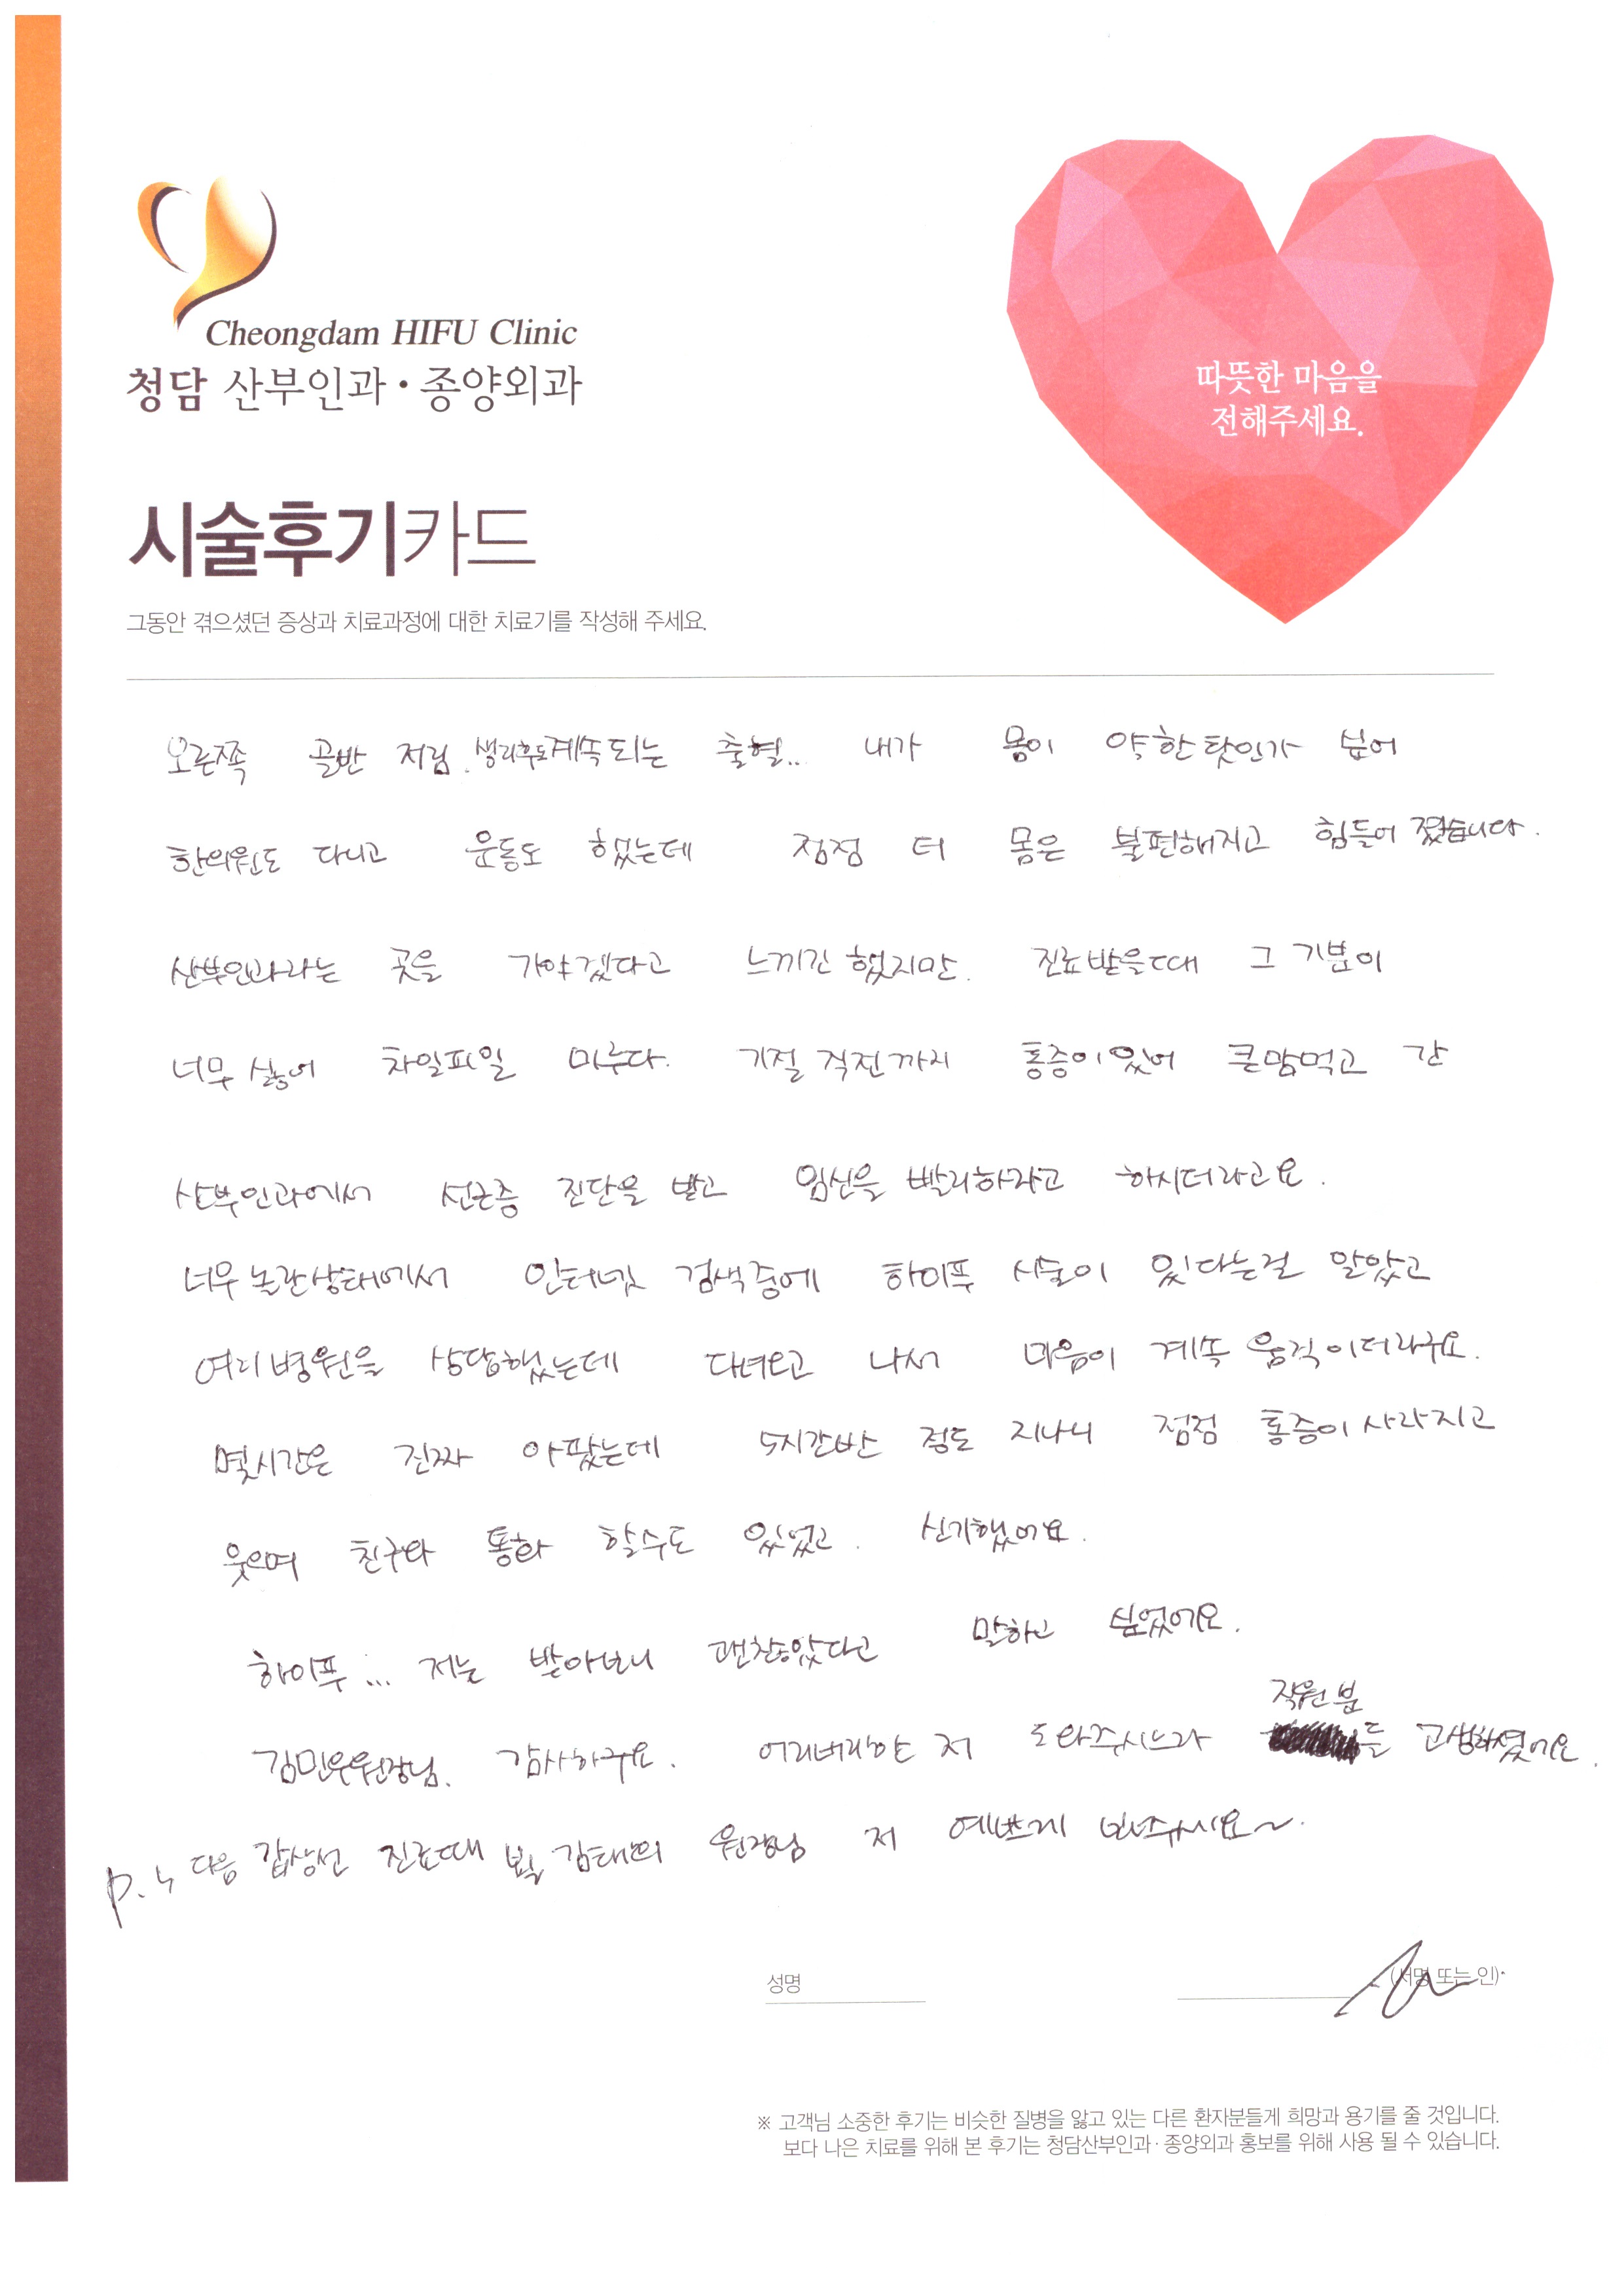 Cheongdam HIFU Clinic
청담 산부인과·종양외과
따뜻한 마음을
전해주세요.
시술후기카드
그동안 겪으셨던 증상과 치료과정에 대한 치료기를 작성해 주세요.
오른쪽 골반 저림. 생리후도계속되는 출혈.. 내가 몸이 약한탓인가 싶어
한의원도 다니고 운동도 했는데 점점 더 몸은 불편해지고 힘들어 졌습니다.
산부인과라는 곳을 가야겠다고 느끼긴 했지만. 진료받을때 그 기분이
너무 싫어 차일피일 미루다. 기절 직전까지 통증이있어 큰맘먹고 간
산부인과에서 선근증 진단을 받고 임신을 빨리하라고 하시더라고요.
너무 놀란상태에서 인터넷 검색중에 하이푸 시술이 있다는걸 알았고
여러병원을 상담했는데 다녀오고 나서 마음이 계속 움직이더라구요.
몇시간은 진짜 아팠는데 5시간반 정도 지나니 점점 통증이사라지고
웃으며 친구와 통화 할수도 있었고. 신기했어요.
하이푸... 저는 받아보니 괜찮았다고 말하고 싶었어요.
직원분
김민우원장님. 감사하구요. 어리버리한 저 도와주시느라 들 고생하셨어요.
p.s 다음 갑상선 진료때 뵐 김태희 원장님 저 예쁘게 봐주시요~.
성명
(서명 또는 인)
※ 고객님 소중한 후기는 비슷한 질병을 앓고 있는 다른 환자분들게 희망과 용기를 줄 것입니다.
보다 나은 치료를 위해 본 후기는 청담산부인과·종양외과 홍보를 위해 사용 될 수 있습니다.